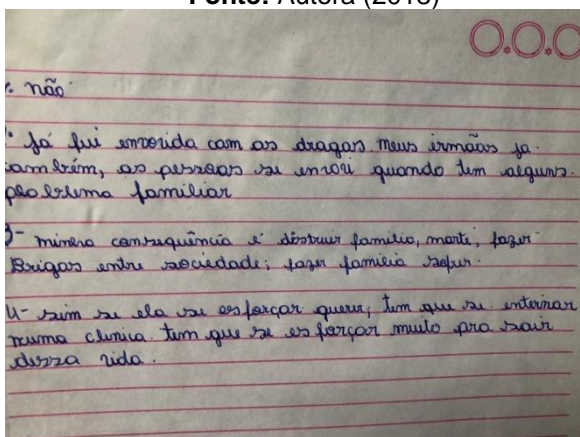 Fonte: Autora (2018)
não
já fui envorida com as dragas meus irmãos ja.
também, as pessoas se envori quando tem alguns.
problema familiar
3- minera consequência é distruir familia, morte, fazer
Brigas entre sociedade; fazer familia sofrer.
4- sim se ela se esforçar querer, tem que se enternar
numa clinica tem que se esforçar muito pra sair
dessa vida.